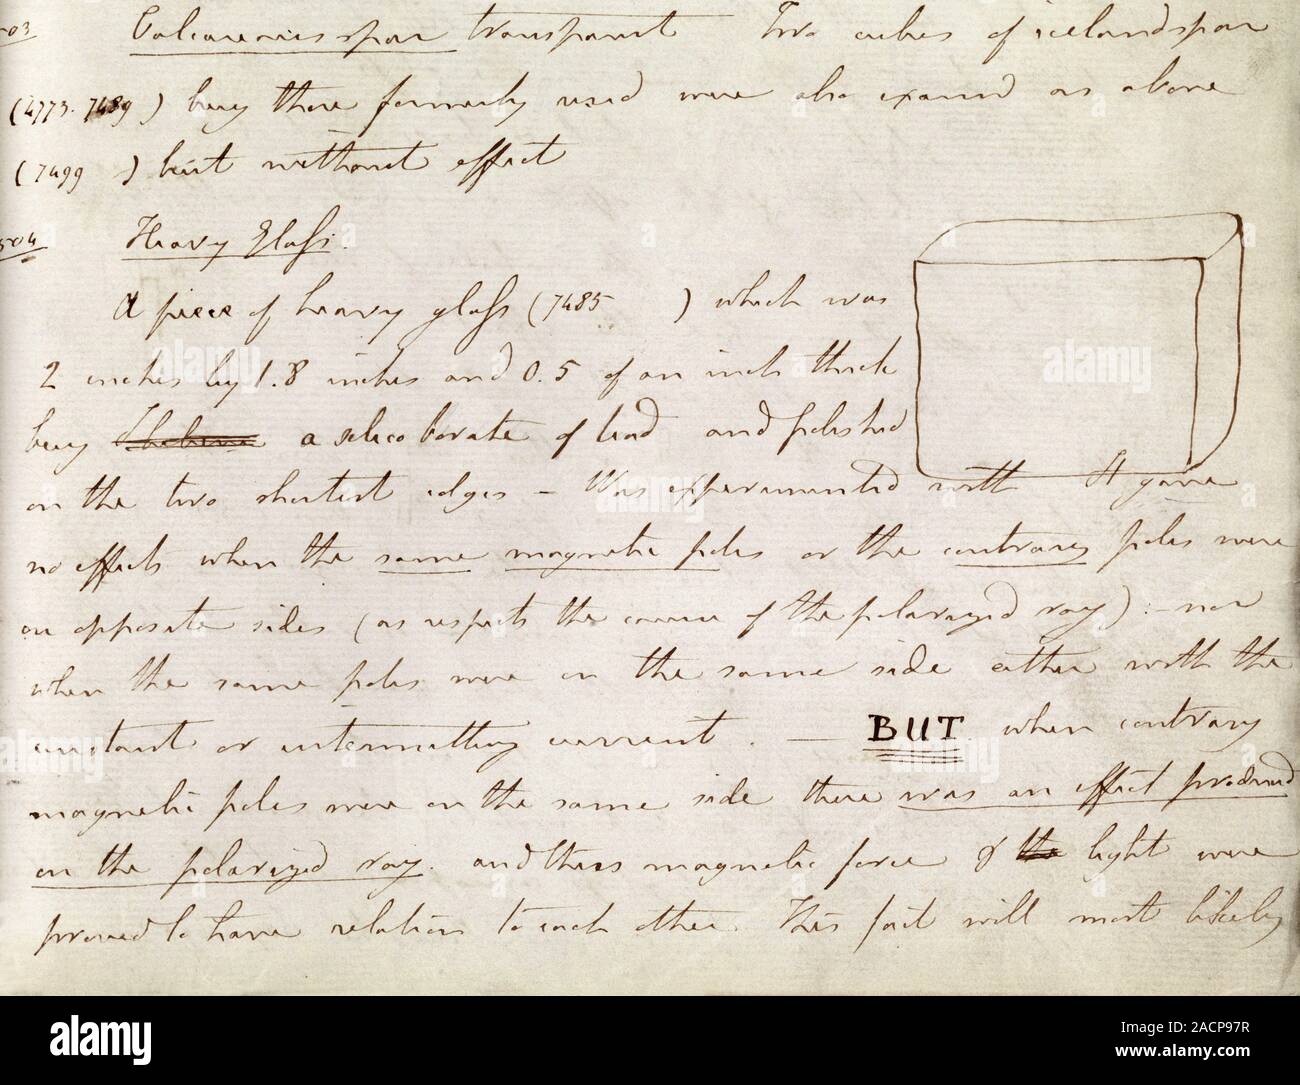 Calcareous spar transparent Two cubes of iceland spar
(4773. 7489) being those formerly used were also examd as above
(7499 ) but without effect
504 Heavy Glass.
A piece of heavy glass (7485 ) which was
2 inches by 1.8 inches and 0.5 of an inch thick
being a silico borate of lead and polished
on the two shortest edges – Was experimented with It gave
no effects when the same magnetic poles or the contrary poles were
on opposite sides (as respects the course of the polarized ray) :– nor
when the same poles were on the same side either with the
constant or intermitting current. — BUT when contrary
magnetic poles were on the same side there was an effect produced
on the polarized ray. and thus magnetic force & the light were
proved to have relations to each other This fact will most likely
alamy
Image ID: ACP97R
www.alamy.com